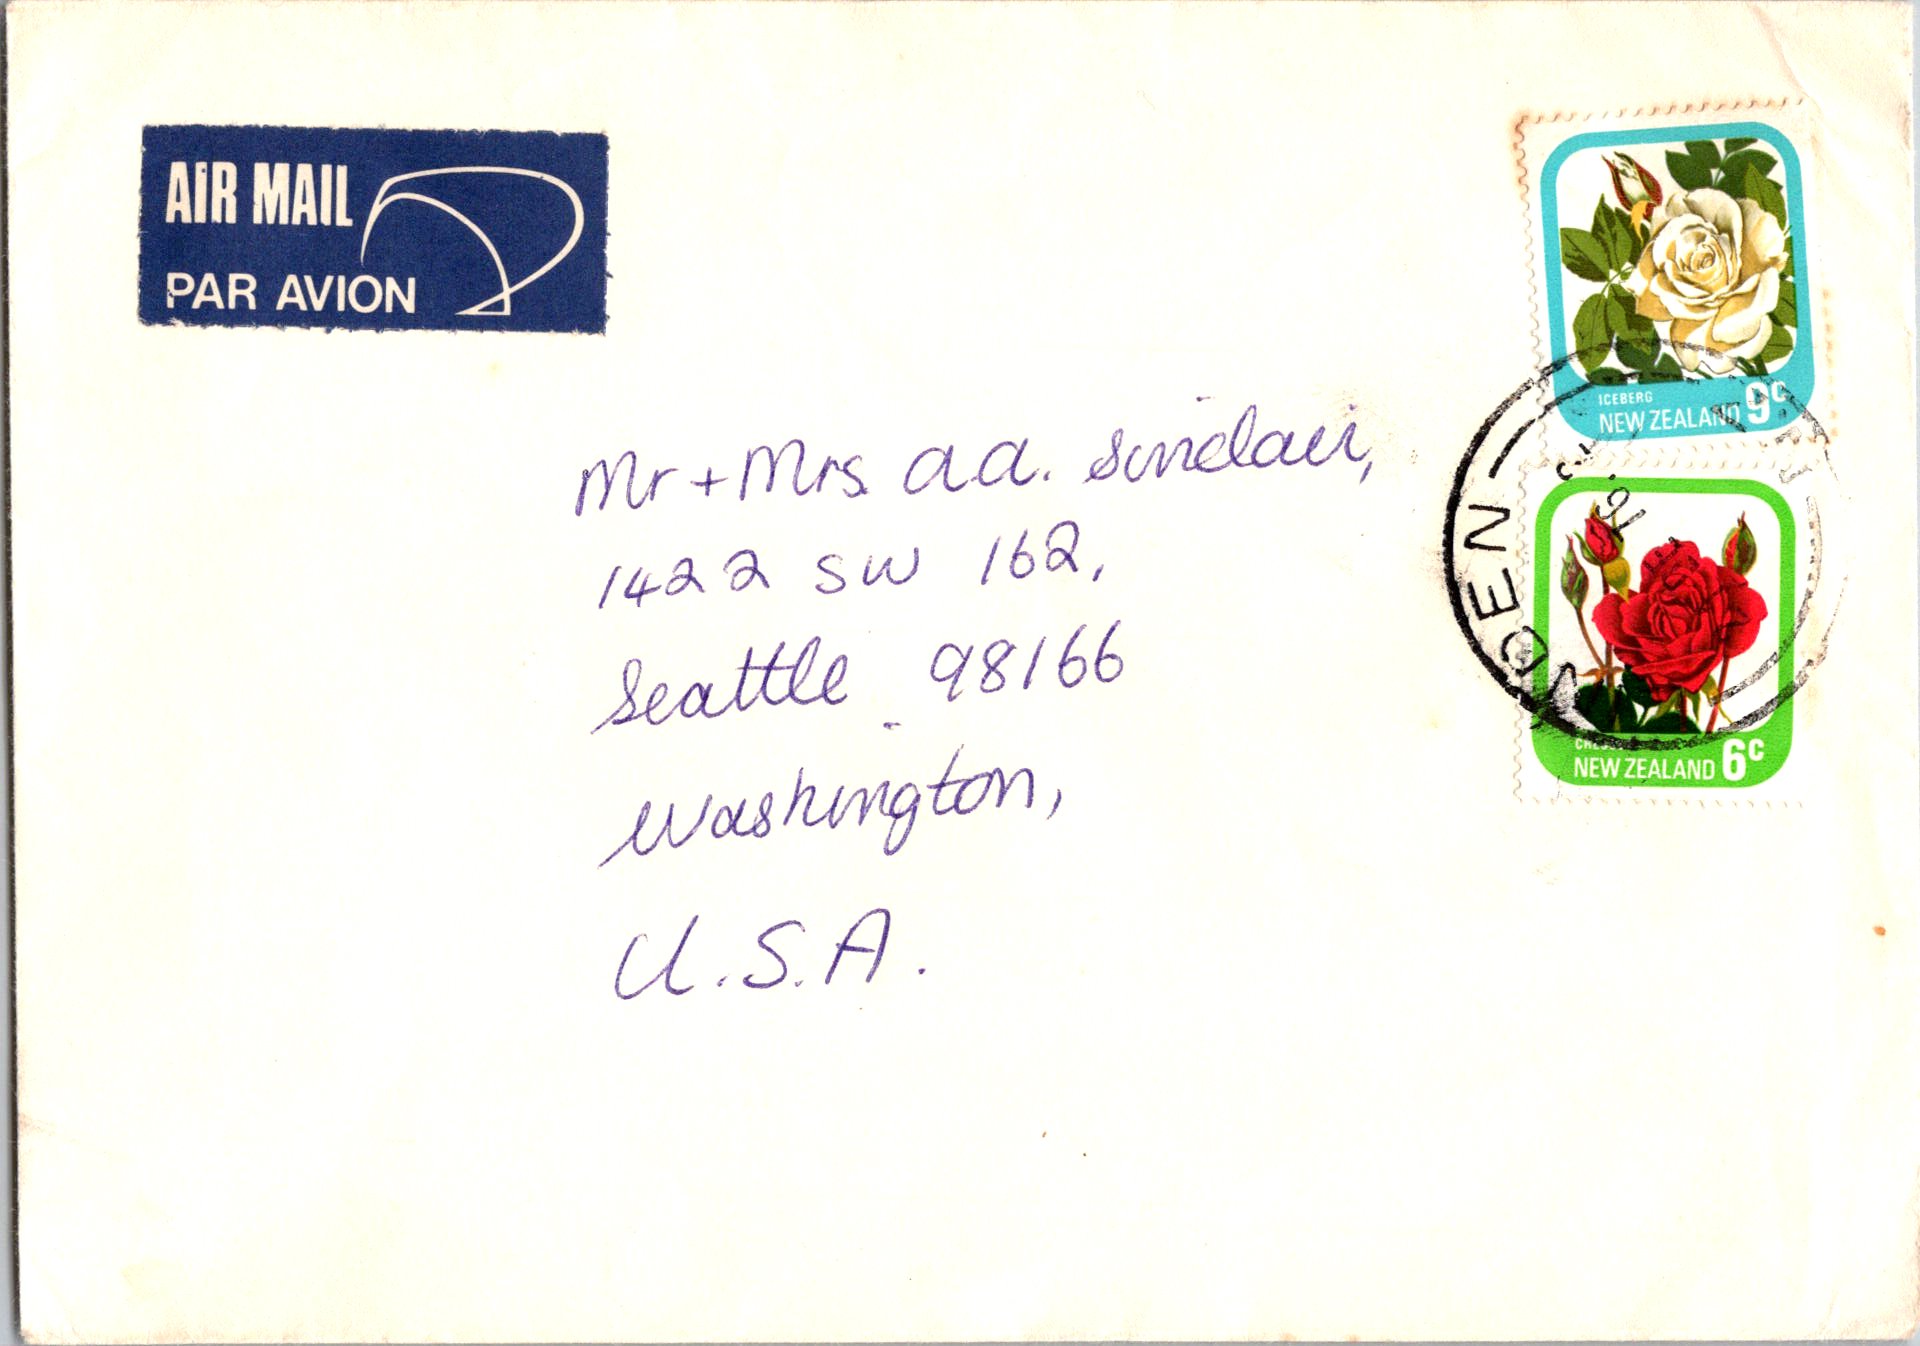 AIR MAIL
PAR AVION
ICEBERG
NEW ZEALAND 9c
Mr + Mrs a.a. Sinclair,
1422 SW 162,
Seattle 98166
Washington,
U.S.A.
NEW ZEALAND 6c